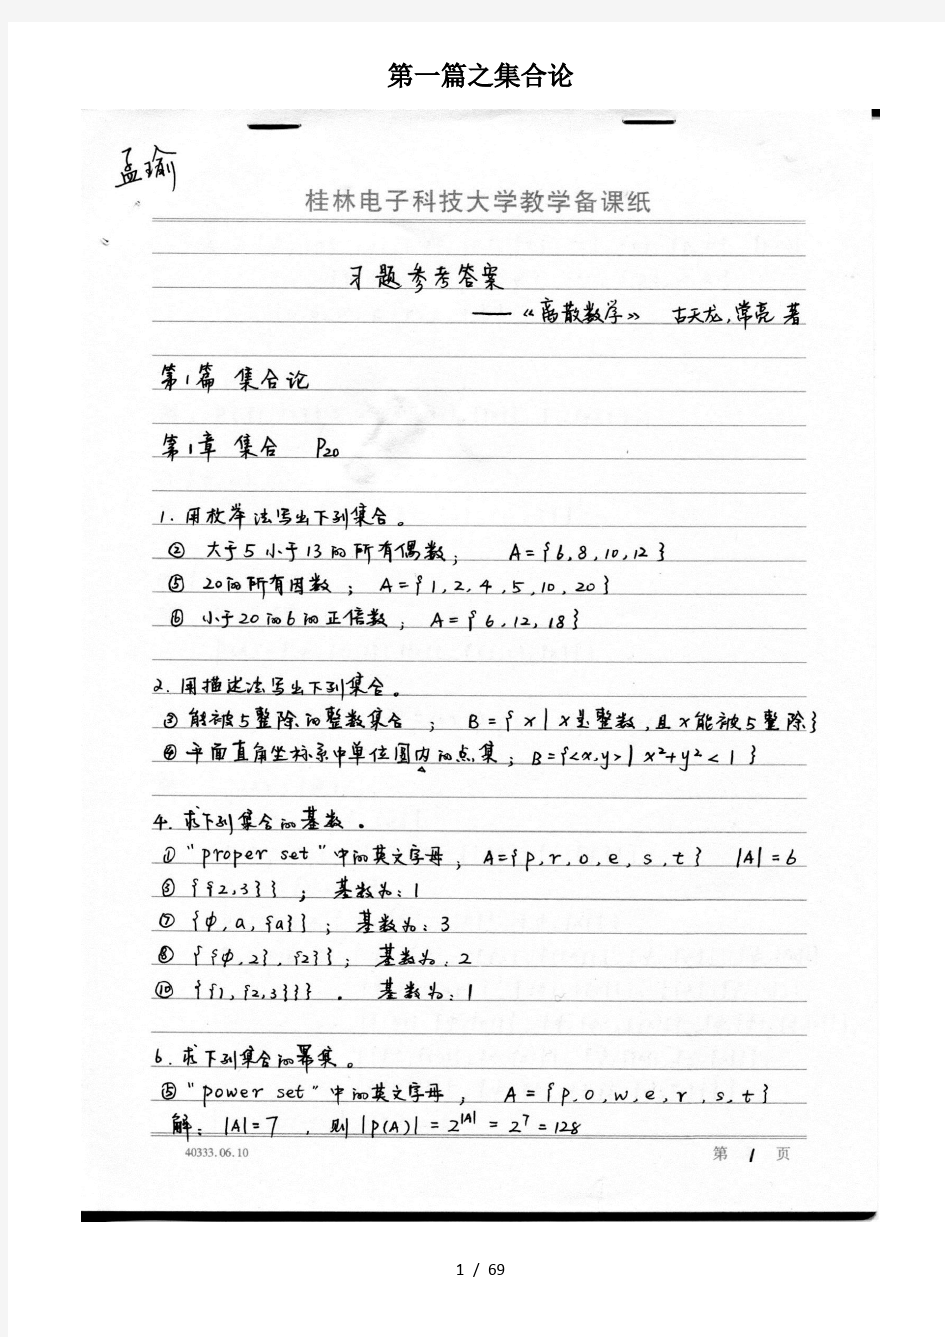 第一篇之集合论
孟瑜
桂林电子科技大学教学备课纸
习题参考答案
——《离散数学》 古天龙,常亮 著
第1篇 集合论
第1章 集合 P20
1. 用枚举法写出下列集合。
② 大于5小于13的所有偶数; A={6,8,10,12}
⑤ 20的所有因数; A={1,2,4,5,10,20}
⑥ 小于20的6的正倍数; A={6,12,18}
2. 用描述法写出下列集合。
③ 能被5整除的整数集合; B={x|x是整数,且x能被5整除}
④ 平面直角坐标系中单位圆内的点集; B={<x,y>|x²+y²<1}
4. 求下列集合的基数。
① "proper set"中的英文字母; A={p,r,o,e,s,t} |A|=6
⑤ {{2,3}}; 基数为:1
⑦ {φ,a,{a}}; 基数为:3
⑧ {{φ,2},{2}}; 基数为:2
⑩ {{1,{2,3}}}。 基数为:1
6. 求下列集合的幂集。
⑤ "power set"中的英文字母; A={p,o,w,e,r,s,t}
解: |A|=7 , 则|P(A)|=2^|A|=2⁷=128
40333.06.10 第 1 页
1 / 69